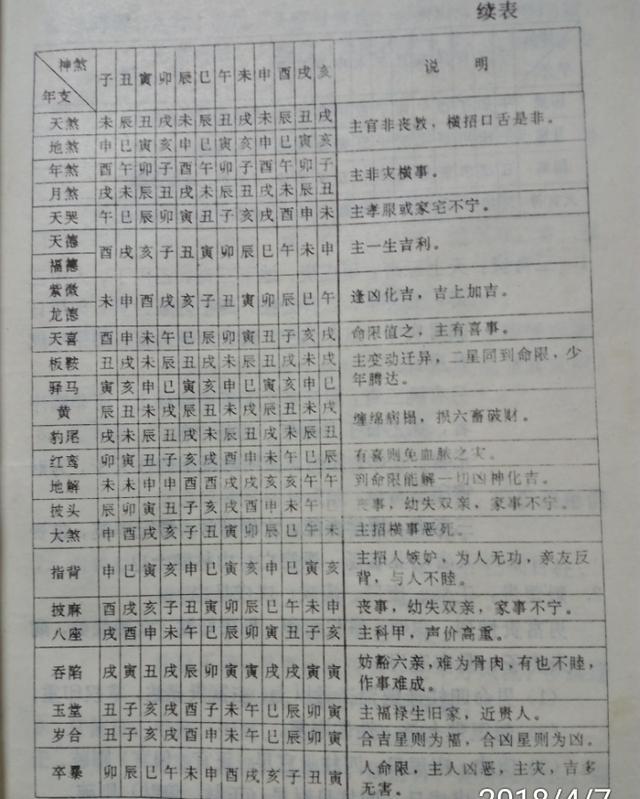 续表
神煞
年支
子 丑 寅 卯 辰 巳 午 未 申 酉 戌 亥 说 明
天煞 未 辰 丑 戌 未 辰 丑 戌 未 辰 丑 戌 主官非丧教，横招口舌是非。
地煞 申 巳 寅 亥 申 巳 寅 亥 申 巳 寅 亥
年煞 酉 午 卯 子 酉 午 卯 子 酉 午 卯 子 主非灾横事。
月煞 戌 未 辰 丑 戌 未 辰 丑 戌 未 辰 丑
天哭 午 巳 辰 卯 寅 丑 子 亥 戌 酉 申 未 主孝服或家宅不宁。
天德
福德
酉 戌 亥 子 丑 寅 卯 辰 巳 午 未 申 主一生吉利。
紫微
龙德
未 申 酉 戌 亥 子 丑 寅 卯 辰 巳 午 逢凶化吉，吉上加吉。
天喜 酉 申 未 午 巳 辰 卯 寅 丑 子 亥 戌 命限值之，主有喜事。
板鞍 丑 戌 未 辰 丑 戌 未 辰 丑 戌 未 戌 主变动迁异，二星同到命限，少
驿马 寅 亥 申 巳 寅 亥 申 巳 寅 亥 申 巳 年腾达。
黄 辰 丑 未 戌 辰 丑 未 戌 辰 丑 未 戌 缠绵病榻，损六畜破财。
豹尾 戌 未 辰 丑 戌 未 辰 丑 戌 未 辰 丑
红鸾 卯 寅 丑 子 亥 戌 酉 申 未 午 巳 辰 有喜则免血脉之灾。
地解 未 未 申 申 酉 酉 戌 戌 亥 亥 午 午 到命限能解一切凶神化吉。
披头 辰 卯 寅 丑 子 亥 戌 酉 申 未 午 丧事，幼失双亲，家事不宁。
大煞 申 酉 戌 亥 子 丑 寅 卯 辰 巳 午 未 主招横事恶死。
指背 申 巳 寅 亥 申 巳 寅 亥 申 巳 寅 亥 主招人嫉妒，为人无功，亲友反
背，与人不睦。
披麻 酉 戌 亥 子 丑 寅 卯 辰 巳 午 未 申 丧事，幼失双亲，家事不宁。
八座 戌 酉 申 未 午 巳 辰 卯 寅 丑 子 亥 主科甲，声价高重。
吞陷 戌 寅 丑 戌 辰 卯 寅 寅 戌 戌 寅 寅 妨豁六亲，难为骨肉，有也不睦，
作事难成。
玉堂 丑 子 亥 戌 酉 子 未 午 巳 辰 卯 寅 主福禄生旧家，近贵人。
岁合 丑 子 亥 戌 酉 申 未 午 巳 辰 卯 寅 合吉星则为福，合凶星则为凶。
卒暴 卯 辰 巳 午 未 申 酉 戌 亥 子 丑 寅 人命限，主人凶恶，主灾，吉多
无害。
2018/4/7